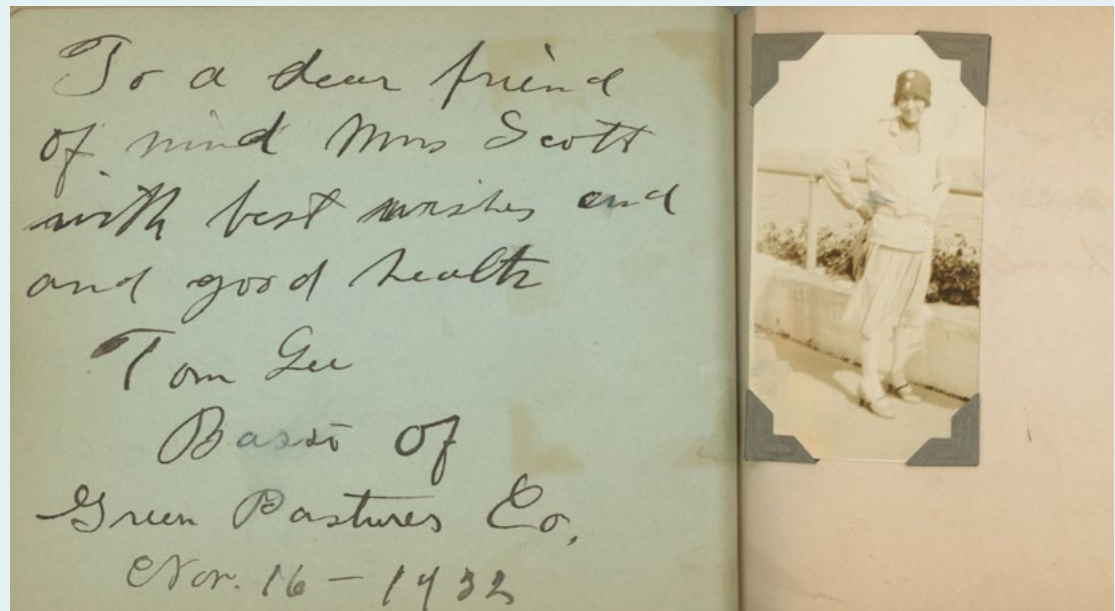 To a dear friend
of mind Mrs Scott
with best wishes and
and good health
Tom Lee
Basso of
Green Pastures Co,
Nov. 16 - 1932